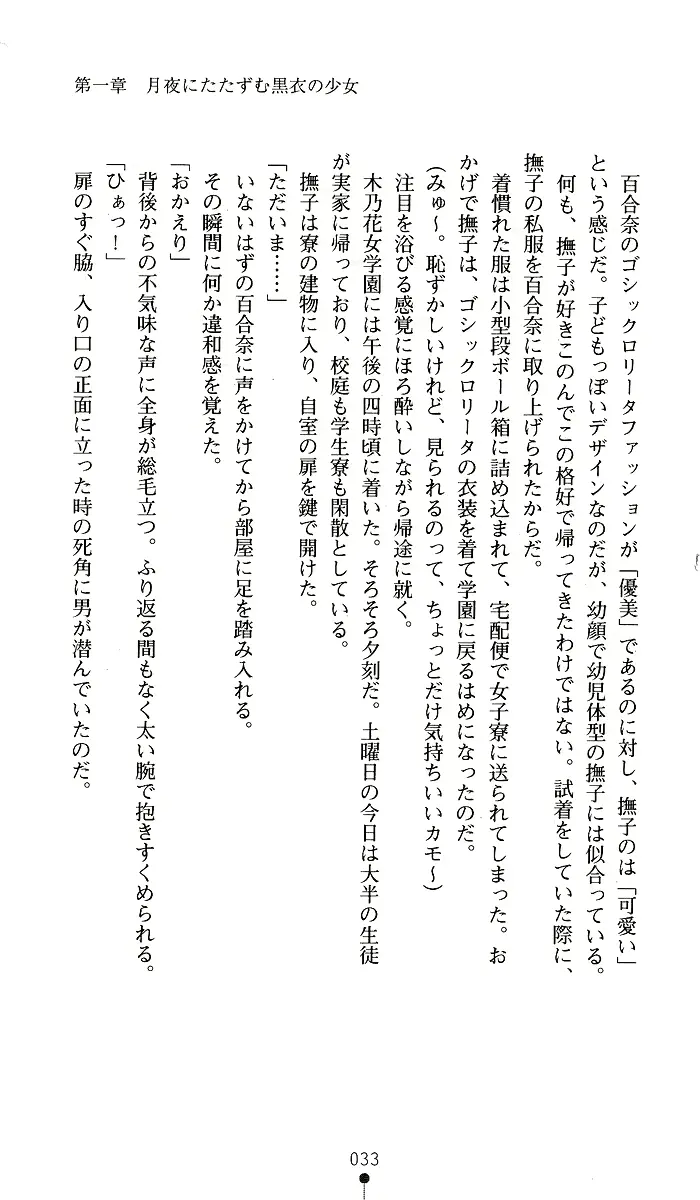 第一章　月夜にたたずむ黒衣の少女
　百合奈のゴシックロリータファッションが「優美」であるのに対し、撫子のは「可愛い」
という感じだ。子どもっぽいデザインなのだが、幼顔で幼児体型の撫子には似合っている。
　何も、撫子が好きこのんでこの格好で帰ってきたわけではない。試着をしていた際に、
撫子の私服を百合奈に取り上げられたからだ。
　着慣れた服は小型段ボール箱に詰め込まれて、宅配便で女子寮に送られてしまった。お
かげで撫子は、ゴシックロリータの衣装を着て学園に戻るはめになったのだ。
（みゅ～。恥ずかしいけれど、見られるのって、ちょっとだけ気持ちいいカモ～）
　注目を浴びる感覚にほろ酔いしながら帰途に就く。
　木乃花女学園には午後の四時頃に着いた。そろそろ夕刻だ。土曜日の今日は大半の生徒
が実家に帰っており、校庭も学生寮も閑散としている。
　撫子は寮の建物に入り、自室の扉を鍵で開けた。
「ただいま……」
　いないはずの百合奈に声をかけてから部屋に足を踏み入れる。
　その瞬間に何か違和感を覚えた。
「おかえり」
　背後からの不気味な声に全身が総毛立つ。ふり返る間もなく太い腕で抱きすくめられる。
「ひぁっ！」
　扉のすぐ脇、入り口の正面に立った時の死角に男が潜んでいたのだ。
033